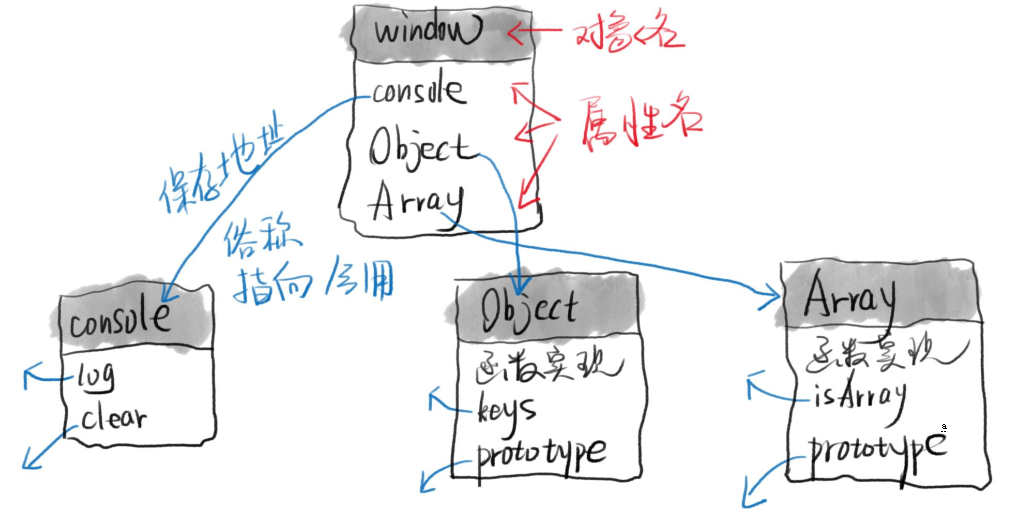 window
对象名
console
属性名
Object
Array
保存地址
俗称
指向/引用
console
log
clear
Object
函数实现
keys
prototype
Array
函数实现
isArray
prototype